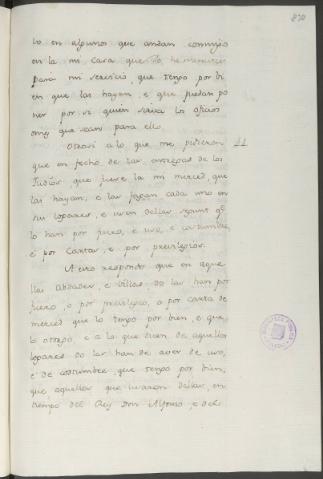 870
lo en algunos que andan conmigo
en la mi casa que he menester
para mi servicio, que tengo por bi
en que las hayan, e que puedan po
ner por si quien sirva los oficios
omes que sean para ello.
Otrosi a lo que me pidieron 11
que en fecho de las entregas de los
Judios, que fuere la mi merced que
las hayan, e las fagan cada uno en
sus logares, e usen dellas segunt q.
lo han por fuero, e uso, e costumbre
e por Cartas, e por previlegios.
A esto respondo que en aque
llas Cibdades, e Villas do las han por
fuero, o por previlegio, o por carta de
merced que lo tengo por bien, e que
lo otorgo, e a lo que dicen de aquellos
logares do las han de aver de uso,
e de costumbre, que tengo por bien,
que aquellos que usaron dellas, en
tiempo del Rey Don Alfonso, e del